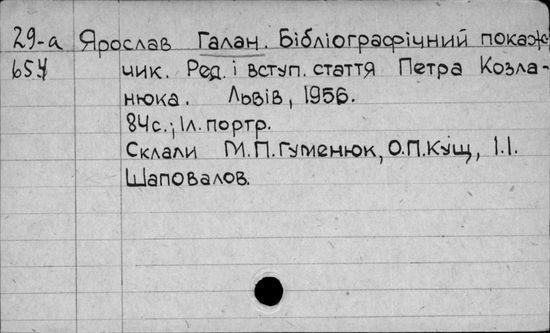 29-а Ярослав Галан. Бібліографічний покаж-
654 чик. Ред. і вступ. стаття Петра Козла-
нюка. Львів, 1956.
84с.; 1л. портр.
Склали М.П. Гуменюк, О.П. Кущ, І.І.
Шаповалов.